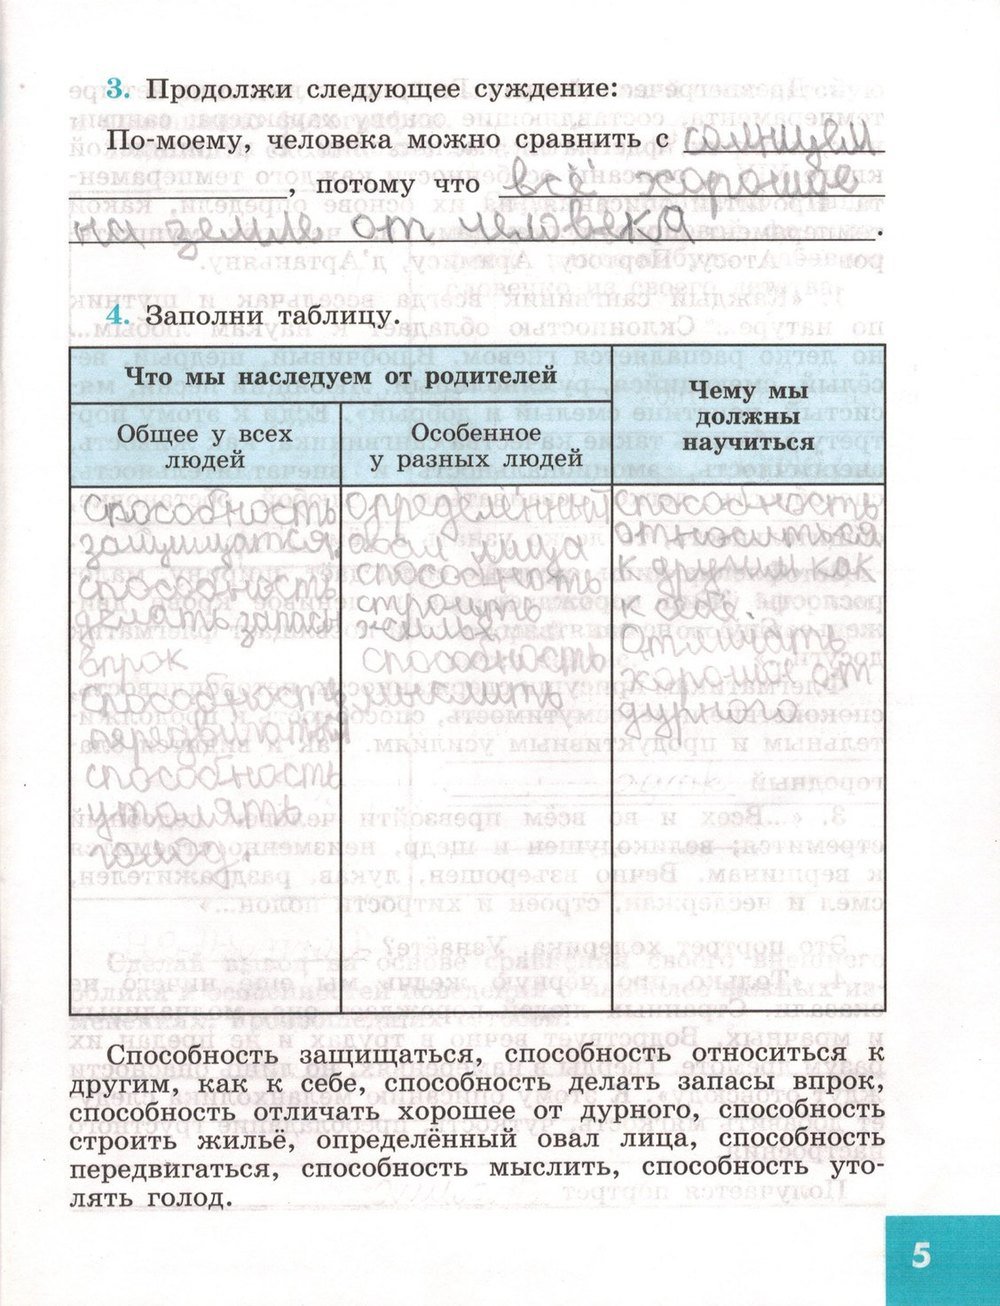 3. Продолжи следующее суждение:
По-моему, человека можно сравнить с солнцем
, потому что всё хорошее
на земле от человека.
4. Заполни таблицу.
Что мы наследуем от родителей
Чему мы
должны
научиться
Общее у всех
людей
Особенное
у разных людей
способность
защищатся,
способность
делать запасы
впрок
способность
передвигаться
способность
утолять
голод.
определённый
овал лица
способность
строить
жильё,
способность
мыслить
способность
относиться
к другим как
к себе.
отличать
хорошее от
дурного
Способность защищаться, способность относиться к
другим, как к себе, способность делать запасы впрок,
способность отличать хорошее от дурного, способность
строить жильё, определённый овал лица, способность
передвигаться, способность мыслить, способность уто-
лять голод.
5